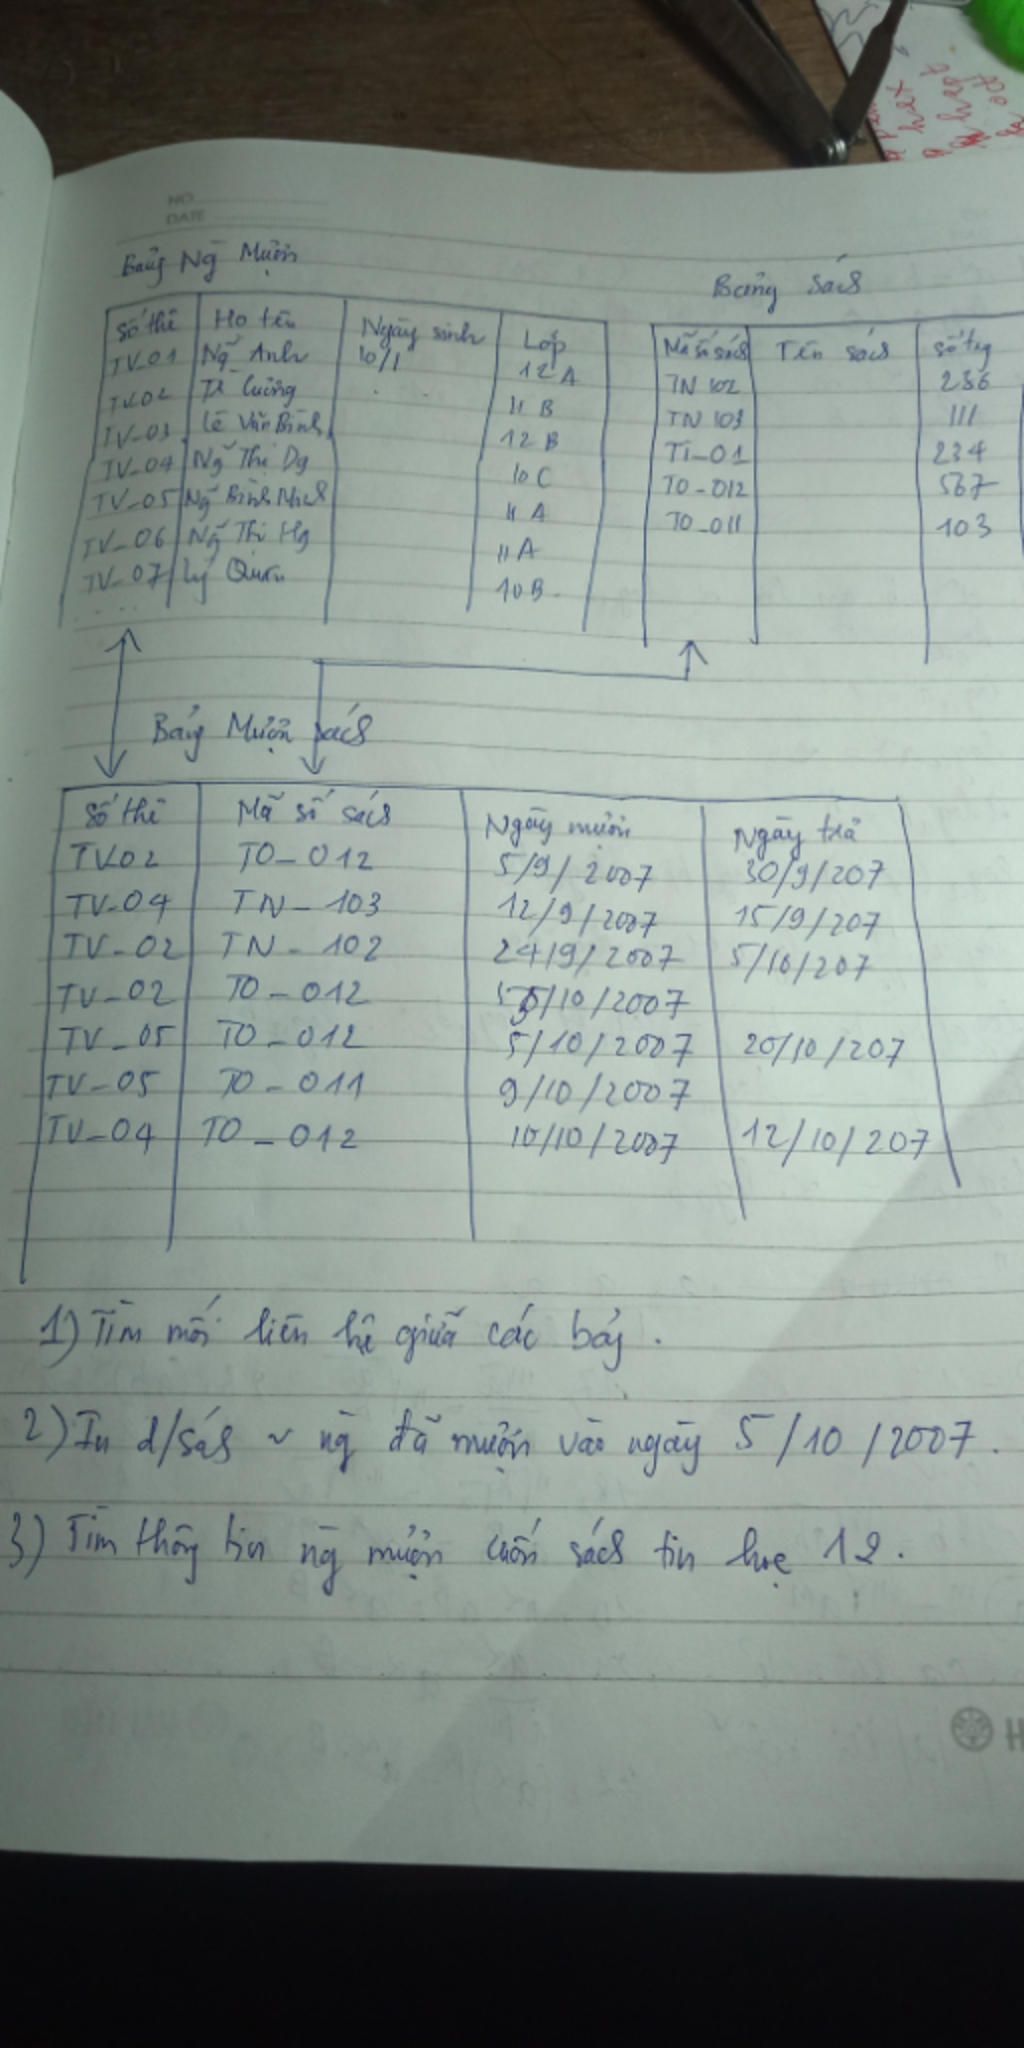 NO
DATE
Bảng Ng Mượn
Số thẻ Họ tên Ngày sinh Lớp
TV-01 Ng~ Anh 10/1 12A
TV-02 Cường 11B
TV-03 Lê Văn Bình 12B
TV-04 Ng~ Thị Dg 10C
TV-05 Ng~ Bình 11A
TV-06 Ng~ Thị Hg 11A
TV-07 Lý 10B
...
Bảng sách
Mã số sách Tên sách Số trg
TN 102 236
TN 103 111
TI-01 234
TO-012 567
TO-011 103
Bảng Mượn sách
Số thẻ Mã số sách Ngày mượn Ngày trả
TV02 TO-012 5/9/2007 30/9/207
TV-04 TN-103 12/9/2007 15/9/207
TV-02 TN-102 24/9/2007 5/10/207
TV-02 TO-012 /10/2007
TV-05 TO-012 5/10/2007 20/10/207
TV-05 TO-011 9/10/2007
TV-04 TO-012 10/10/2007 12/10/207
1) Tìm mối liên hệ giữa các bảg.
2) In d/sách ~ ng đã mượn vào ngày 5/10/2007.
3) Tìm thông tin ng mượn cuốn sách tin học 12.
H